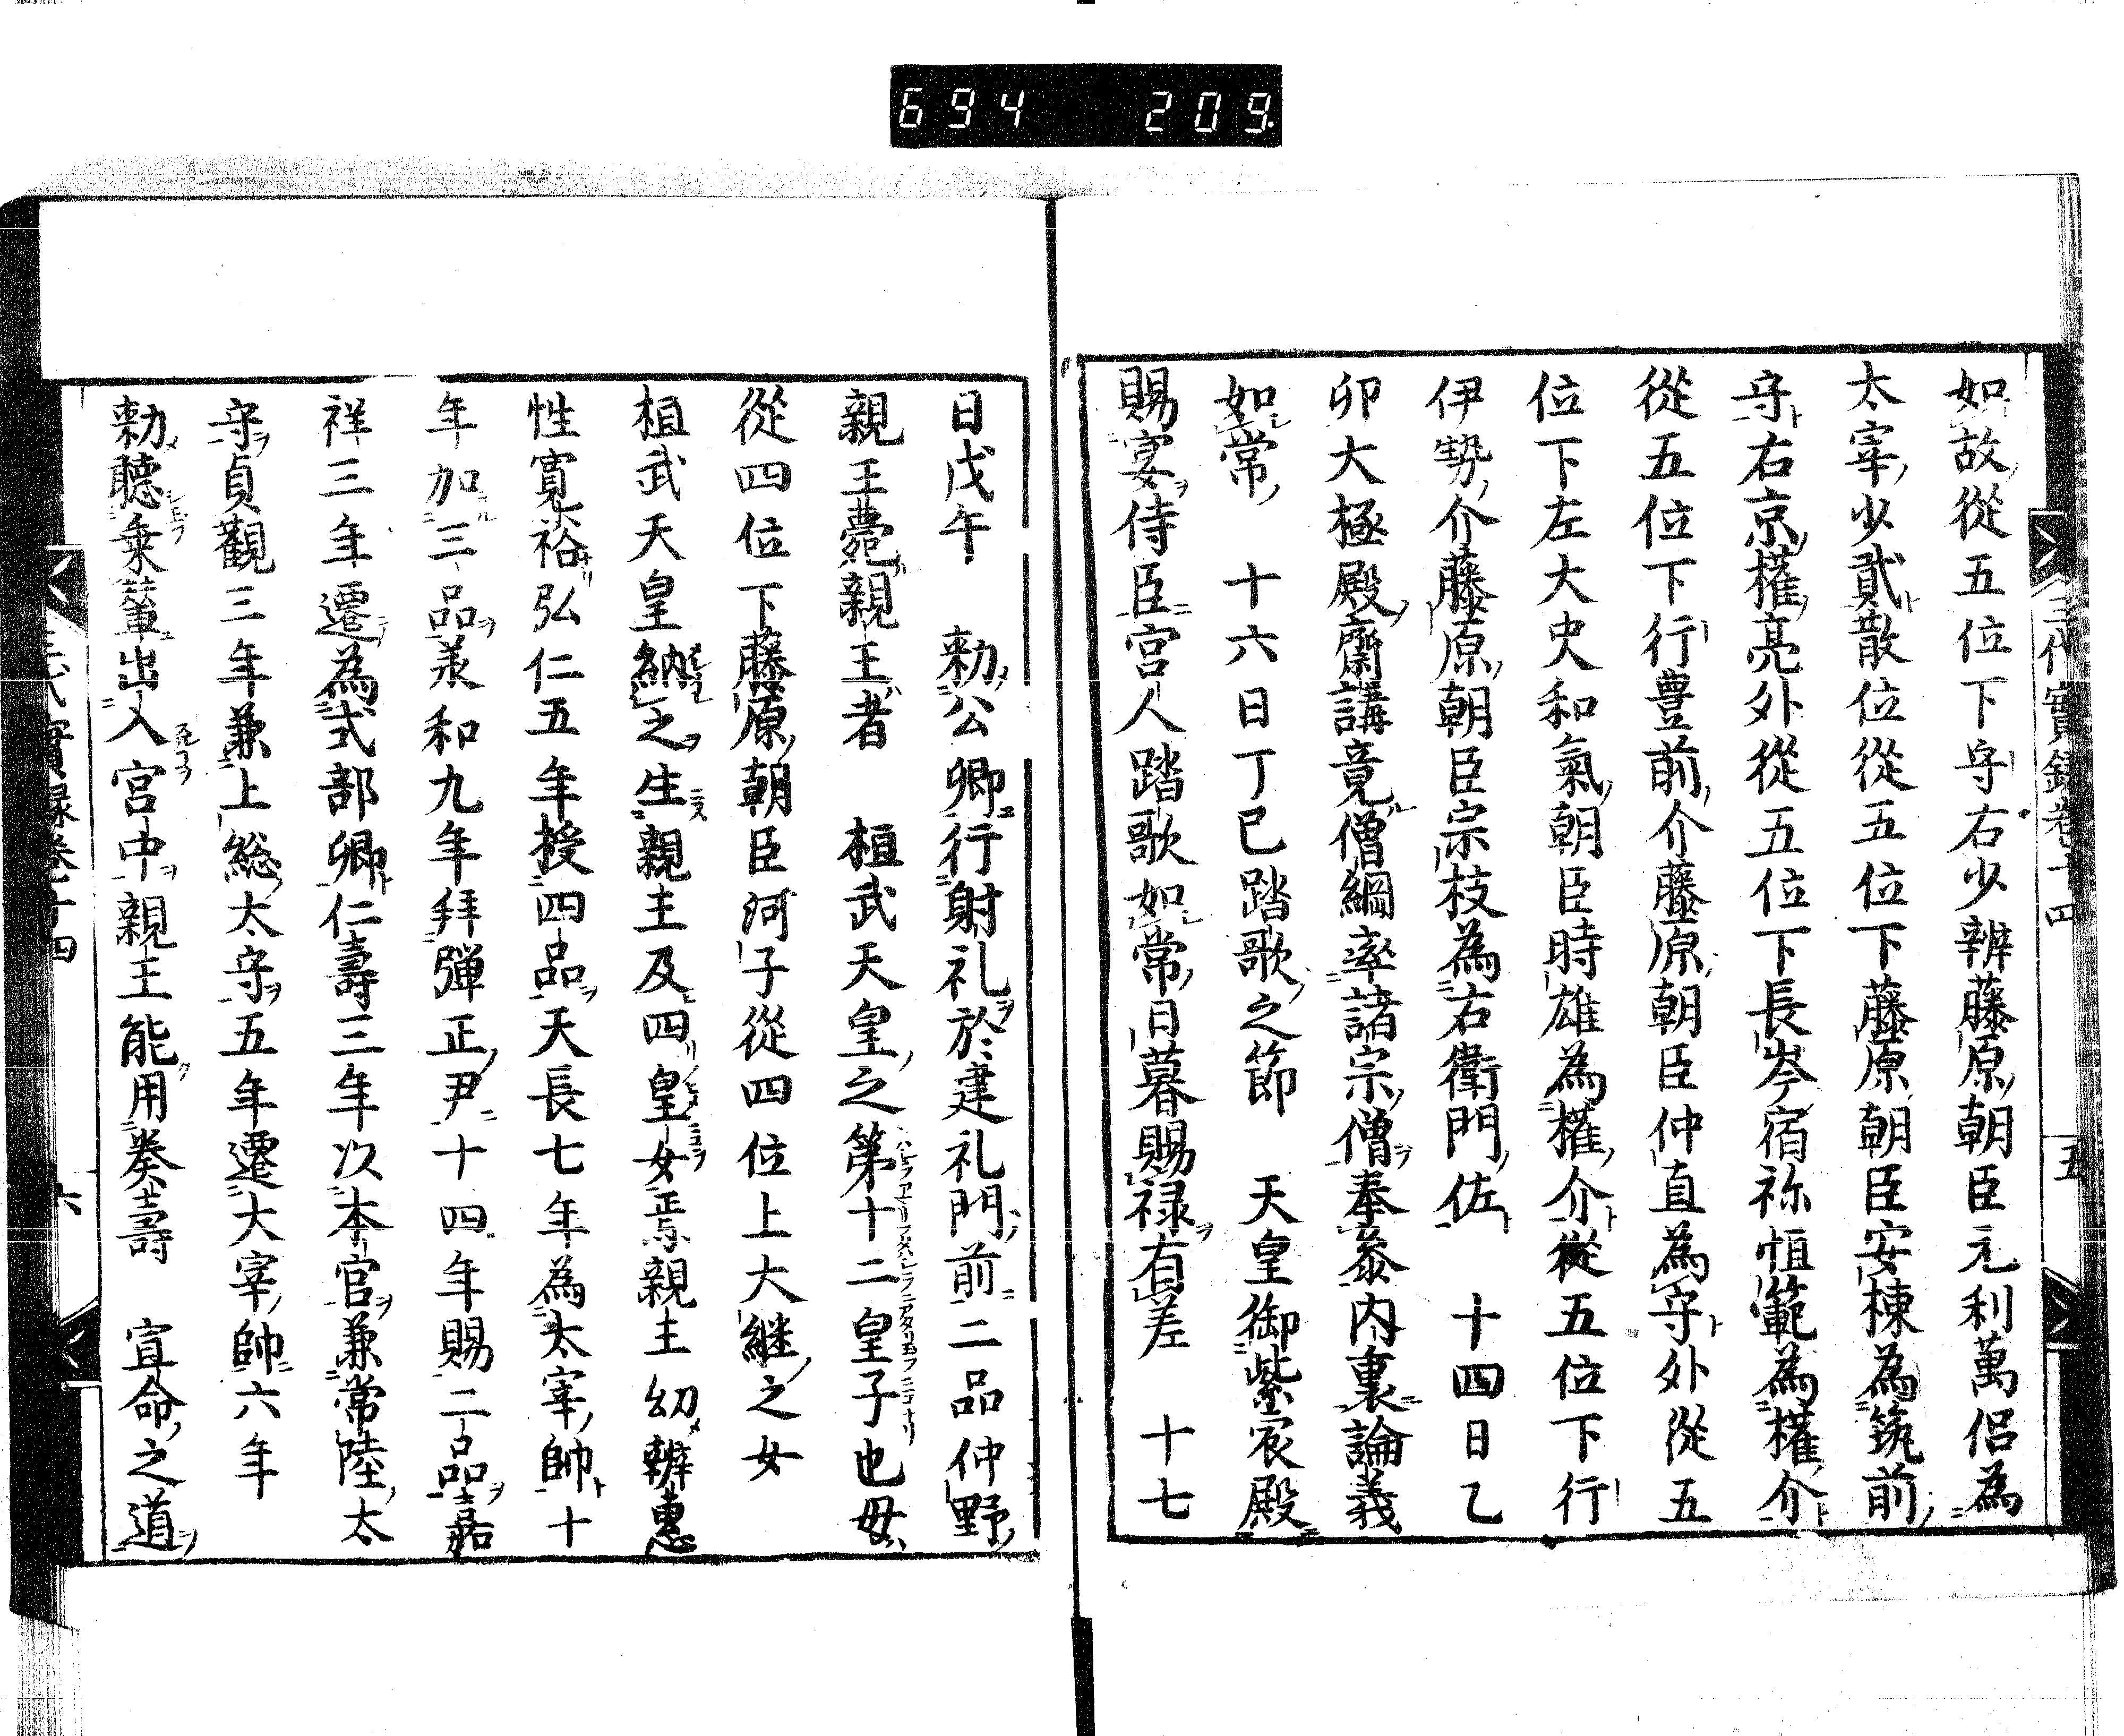 694 209
三代實録卷十四 五
如故從五位下守右少辨藤原朝臣元利萬侶為
太宰少貳散位從五位下藤原朝臣安棟為筑前
守右京權亮外從五位下長岑宿祢恒範為權介
從五位下行豊前介藤原朝臣仲直為守外從五
位下左大史和氣朝臣時雄為權介從五位下行
伊勢介藤原朝臣宗枝為右衛門佐 十四日乙
卯大極殿齋講竟僧綱率諸宗僧奉參内裏論義
如常 十六日丁巳踏歌之節 天皇御紫宸殿
賜宴侍臣宮人踏歌如常日暮賜禄有差 十七
日戊午 勅公卿行射礼於建礼門前二品仲野
親王薨親王者 桓武天皇之第十二皇子也母
從四位下藤原朝臣河子從四位上大継之女
桓武天皇納之生親王及四皇女焉親王幼辨惠
性寛裕弘仁五年授四品天長七年為太宰帥十
年加三品羕和九年拜彈正尹十四年賜二品嘉
祥三年遷為式部卿仁壽三年次本官兼常陸太
守貞觀三年兼上総太守五年遷大宰帥六年
勅聴乗輦出入宮中親王能用奏壽 宣命之道
三代實録卷十四 六